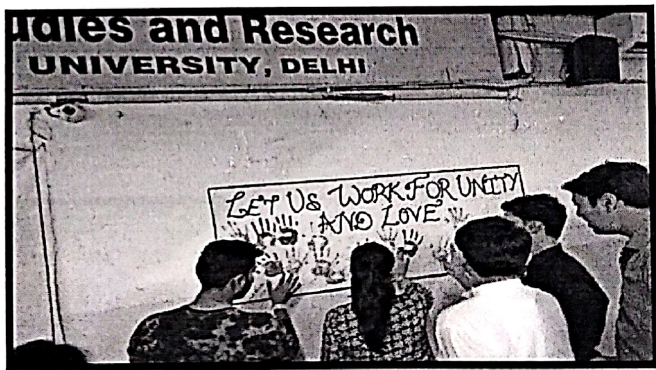 udies and Research
UNIVERSITY, DELHI
LET US WORK FOR UNITY
AND LOVE